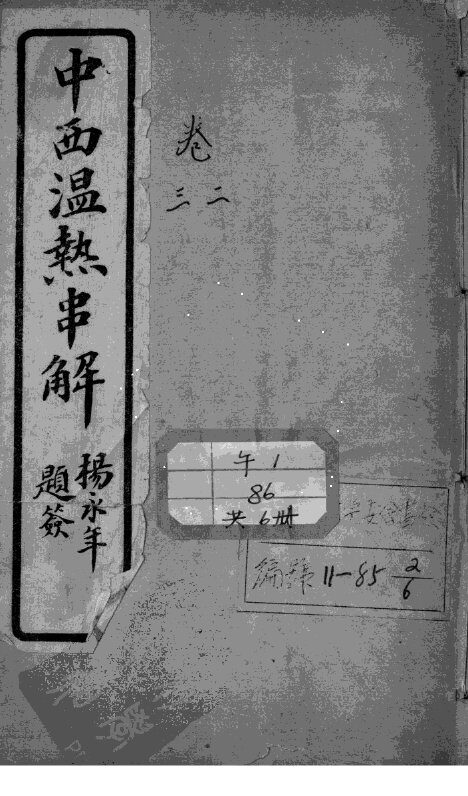 中西温熱串解
楊永年
題簽
卷
二
三
午 1
86
共 6 冊
編號 11-85 2/6